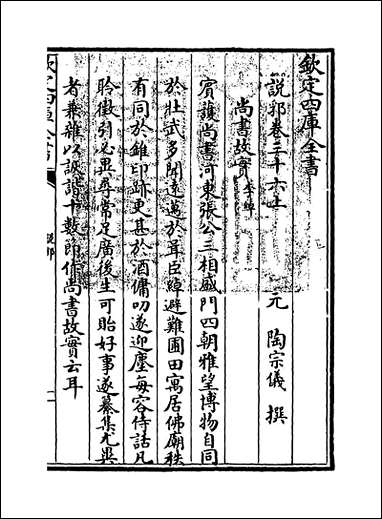 欽定四庫全書
說郛卷三十六上
元 陶宗儀 撰
尚書故實 李綽
賓護尚書河東張公三相盛門四朝雅望博物自同
於壯武多聞遠邁於胥臣綽避難圃田寓居佛廟秩
有同於錐印跡更甚於酒傭叨遂迎塵每容侍話凡
聆徴引必異尋常足廣後生可貽好事遂纂集尤異
者兼雜以詼諧十數節作尚書故實云耳
欽定四庫全書
說郛